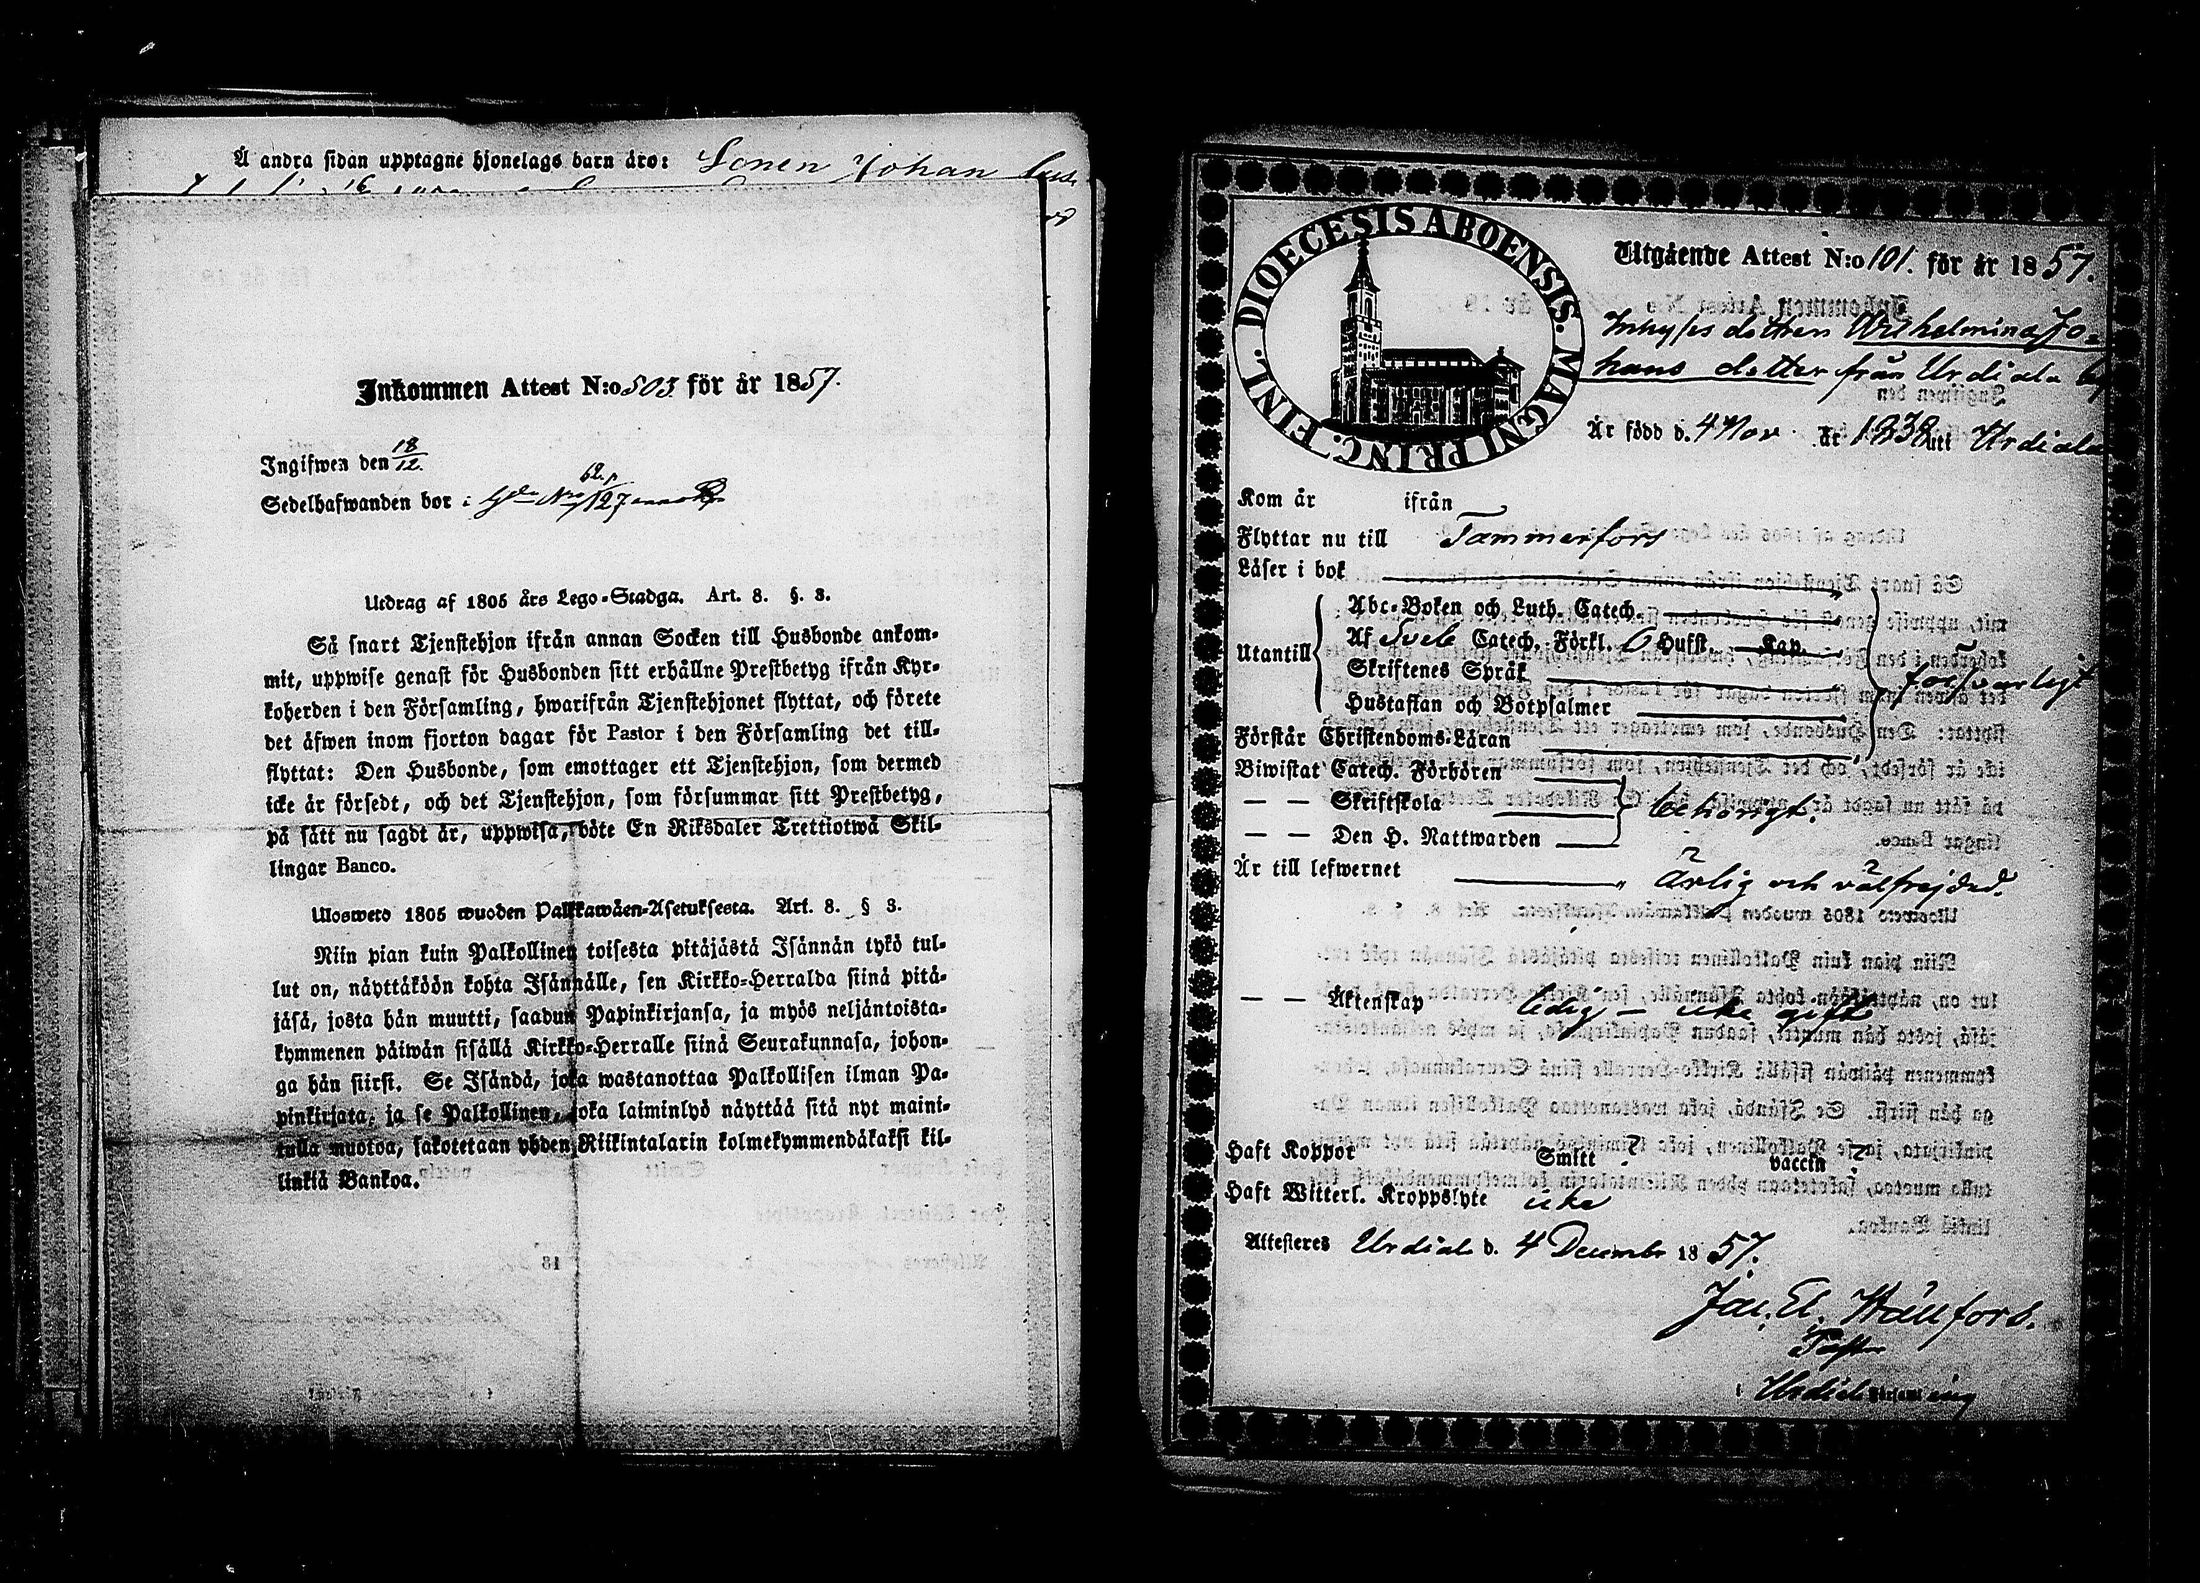 Å andra sidan upptagne hjonelags barn äro: Sonen Johan
Inkommen Attest N:o 503 för år 1857.
Ingifwen den 18/12.
Sedelhafwanden bor i Gde No 127
62. p
Utdrag af 1805 års Lego-Stadga. Art. 8. §. 3.
Så snart Tjenstehjon ifrån annan Socken till Husbonde ankom-
mit, uppwise genast för Husbonden sitt erhållne Prestbetyg ifrån Kyr-
koherden i den Församling, hwarifrån Tjenstehjonet flyttat, och förete
det äfwen inom fjorton dagar för Pastor i den Församling det till-
flyttat: Den Husbonde, som emottager ett Tjenstehjon, som dermed
icke är försedt, och det Tjenstehjon, som försummar sitt Prestbetyg,
på sätt nu sagdt är, uppwisa, böte En Riksdaler Trettiotwå Skil-
lingar Banco.
Ulosweto 1805 wuoden Palkkawäen-Asetuksesta. Art. 8. § 3.
Niin pian kuin Palkollinen toisesta pitäjästä Isännän tykö tul-
lut on, näyttäköön kohta Isännälle, sen Kirkko-Herralda siinä pitä-
jäsä, josta hän muutti, saadun Papinkirjansa, ja myös neljäntoista-
kymmenen päiwän sisällä Kirkko-Herralle siinä Seurakunnasa, johon-
ga hän siirsi. Se Isändä, joka wastanottaa Palkollisen ilman Pa-
pinkirjata, ja se Palkollinen, joka laiminlyö näyttää sitä nyt maini-
tulla muotoa, sakotetaan yhden Riikintalarin kolmekymmendäkaksi kil-
linkiä Bankoa.
18
DIOECESIS ABOENSIS. MAGNI PRINC. FINL.
Utgående Attest N:o 101. för år 1857.
Inhyses dottren Wilhelmina Jo-
hans dotter från Urdiala by
Är född d. 4 Nov år 1838 uti Urdiala
Kom år ifrån
Flyttar nu till Tammerfors
Läser i bok
Utantill
Abc-Boken och Luth. Catech.
Af Sveb Catech. Förkl. 6 Hufst. Kap.
Skriftenes Språk
Hustaflan och Botpsalmer
försvarligt
Förstår Christendoms-Läran
Biwistat Catech. Förhören
— — Skriftskola
behörigt.
— — Den H. Nattwarden
Är till lefwernet ärlig och välfrejdad.
— — Äktenskap ledig — icke gift
Haft Koppor Smitt ? vaccin ?
Haft Witterl. Kroppslyte icke
Attesteres Urdiala d. 4 Decembr 1857.
Jac. El. Hällfors.
Past
i Urdiala Församling